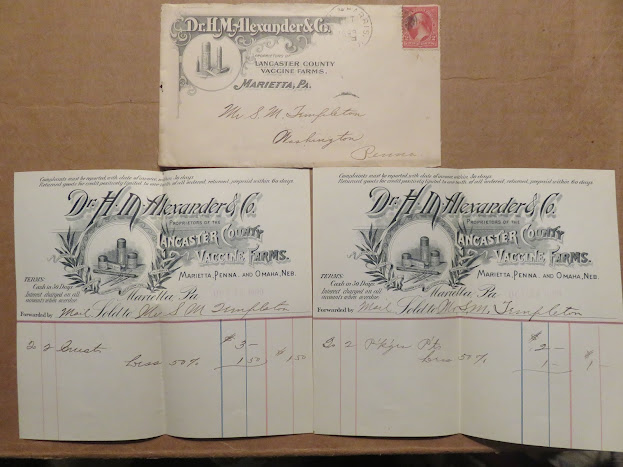 Dr. H. M. Alexander & Co.
PROPRIETORS OF
LANCASTER COUNTY
VACCINE FARMS.
MARIETTA, PA.
Mr S. M. Templeton
Washington
Penna.
Complaints must be reported with date of invoice within 30 days
Returned goods for credit positively limited to
prepaid within 60 days
Dr. H. M. Alexander & Co.
PROPRIETORS OF THE
LANCASTER COUNTY
VACCINE FARMS.
MARIETTA, PENNA. AND OMAHA, NEB.
TERMS:
Cash in 30 Days
Interest charged on all
accounts when overdue
Marietta Pa
Forwarded by Mail Sold to Mr S. M. Templeton
2 $3-
Less 50% 1 50 $1 50
Complaints must be reported with date of invoice within 30 days
Returned goods for credit positively limited to
prepaid within 60 days
Dr. H. M. Alexander & Co.
PROPRIETORS OF THE
LANCASTER COUNTY
VACCINE FARMS.
MARIETTA, PENNA. AND OMAHA, NEB.
TERMS:
Cash in 30 Days
Interest charged on all
accounts when overdue
Marietta Pa
Forwarded by Mail Sold to S. M. Templeton
2 Pts $2-
Less 50% 1- $1-